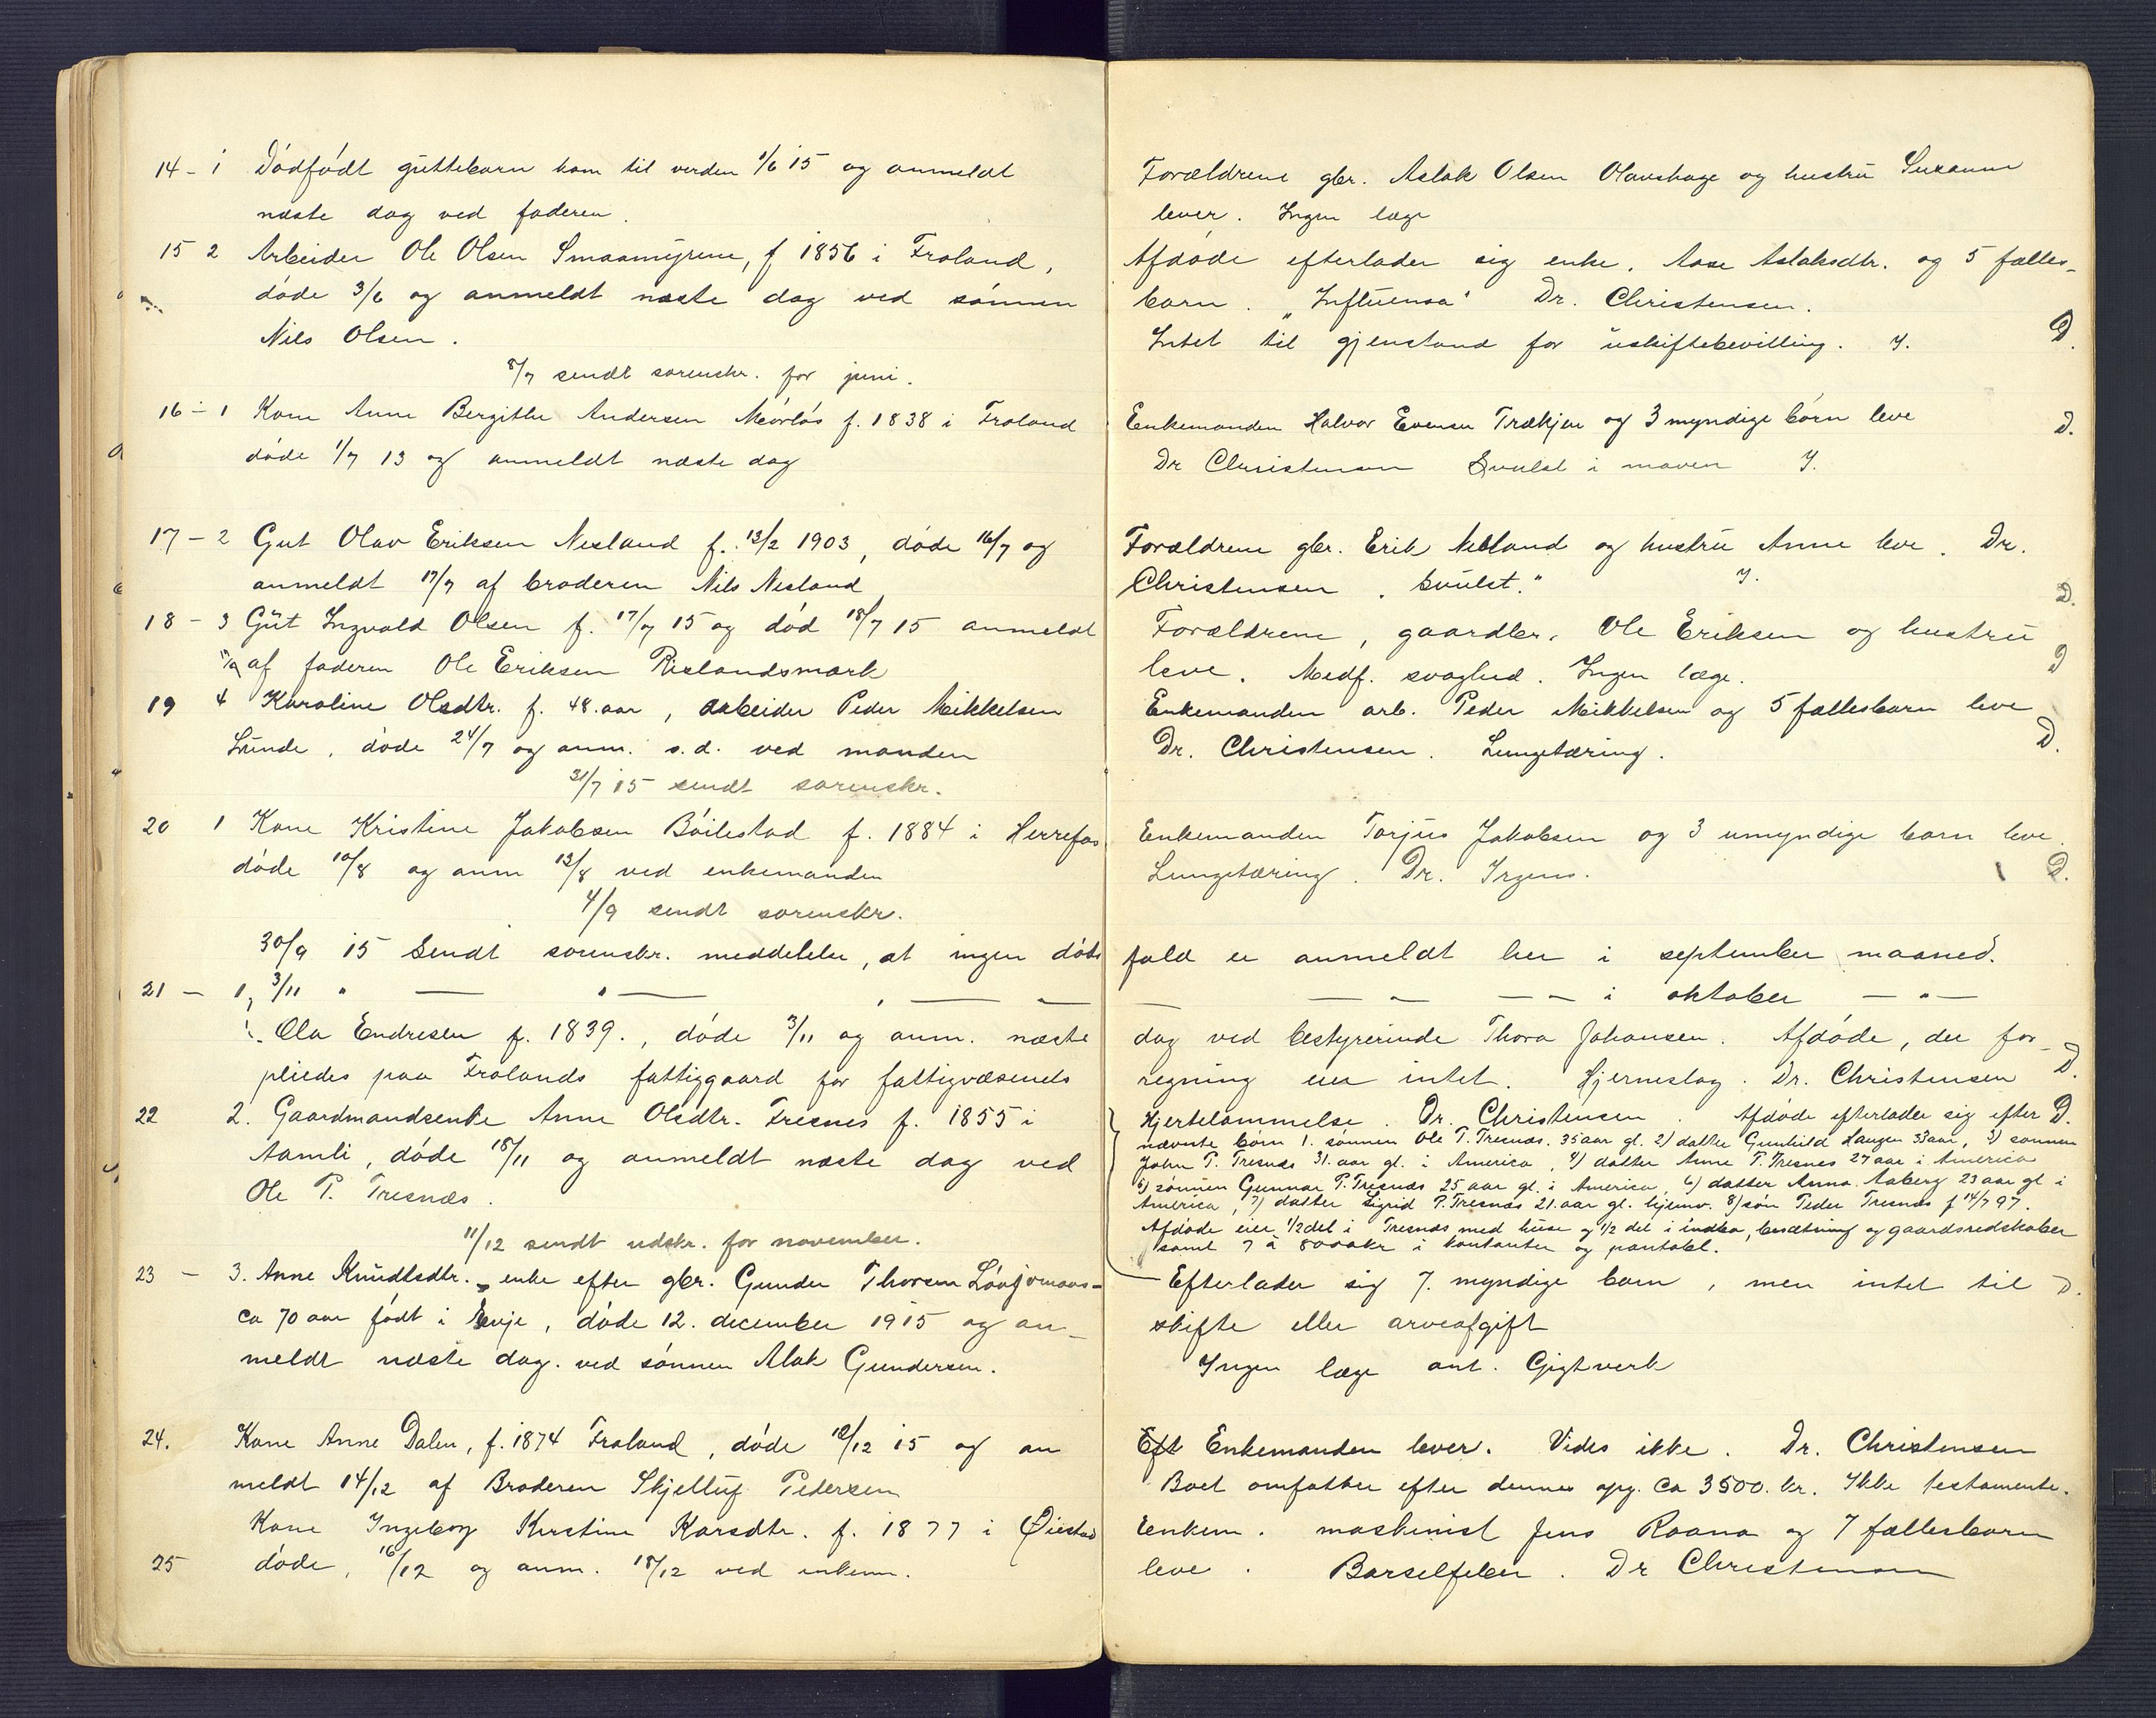 14 - 1 Dødfødt guttebarn kom til verden 1/6 15 og anmeldt
næste dag ved faderen.
15 2 Arbeider Ole Olsen Smaamyrene, f 1856 i Froland,
døde 3/6 og anmeldt næste dag ved sønnen
Nils Olsen.
8/7 sendt sorenskr. for juni.
16 - 1 Kone Anne Bergitte Andersen f. 1838 i Froland
døde 1/7 13 og anmeldt næste dag
17 - 2 Gut Olav Eriksen Nesland f. 13/2 1903, døde 16/7 og
anmeldt 17/7 af broderen Nils Nesland
18 - 3 Gut Ingvald Olsen f. 17/7 15 og død 18/7 15 anmeldt
af faderen Ole Eriksen Rislandsmark
19 4 Karoline Olsdtr. f. 48 aar, arbeider Peder Mikkelsen
Lunde, døde 24/7 og anm. s.d. ved manden
31/7 15 sendt sorenskr.
20 1 Kone Kristine Jakobsen Bøilestad f. 1884 i Herrefos
døde 10/8 og anm 13/8 ved enkemanden
4/9 sendt sorenskr.
30/9 15 Sendt sorenskr. meddelelse, at ingen døds
21 - 1, 3/11 " — " — , — —
Ola Endresen f. 1839., døde 3/11 og anm. næste
pleiedes paa Frolands fattiggaard for fattigvæsenets
22 2. Gaardmandsenke Anne Olsdtr. Tresnes f. 1855 i
Aamli, døde 18/11 og anmeldt næste dag ved
Ole P. Tresnæs.
11/12 sendt udskr. for november.
23 - 3. Anne Knudtsdtr. enke efter gbr. Gunder Thorsen
ca 70 aar født i Evje, døde 12. december 1915 og an-
meldt næste dag. ved sønnen Alak Gundersen.
24. Kone Anne Dalen, f. 1874 Froland, døde 12/12 15 og an
meldt 14/12 af Broderen Skjellup Pedersen
Kone Ingeborg Kirstine Karsdtr. f. 1877 i Øiestad
25 døde, 16/12 og anm. 18/12 ved enkem.
Forældrene gbr. Aslak Olsen Olavshage og hustru Susanne
lever. Ingen læge
Afdøde efterlader sig enke, Aase Aslaksdtr. og 5 fælles-
barn. „Influensa" Dr. Christensen.
Intet til gjenstand for uskiftebevilling. I. D.
Enkemanden Halvor Evensen Trækjen og 3 myndige børn leve D.
Dr Christensen Svulst i maven I.
Forældrene gbr. Erik Nesland og hustru Anne leve. Dr.
Christensen „Svulst." I. D.
Forældrene, gaardbr. Ole Eriksen og hustru
leve. Medf. svaghed. Ingen læge. D
Enkemanden arb. Peder Mikkelsen og 5 fællesbarn leve
Dr. Christensen. Lungetæring. D.
Enkemanden Torjus Jakobsen og 3 umyndige barn leve.
Lungetæring. Dr. Irgens. D.
fald er anmeldt her i september maaned.
— — " — — — i oktober — " —
dag ved bestyrerinde Thora Johansen. Afdøde, der for-
regning eier intet. Hjerneslag. Dr. Christensen D.
Hjertelammelse. Dr. Christensen. Afdøde efterlader sig efter D.
nævnte børn 1. sønnen Ole T. Tresnæs. 35 aar gl. 2) datter Gunhild Haugen 33 aar, 3) sønnen
John P. Tresnæs 31. aar gl. i America, 4) datter Anne P. Tresnes 27 aar i America
5) sønnen Gunnar P. Tresnæs 25 aar gl. i America, 6) datter Anna Aaberg 23 aar gl i
America, 7) datter Sigrid P. Tresnæs 21. aar gl. hjemv. 8) søn Peder Tresnæs f 14/7 97.
Afdøde eier 1/2 del i Tresnæs med huse og 1/2 del i indbo, besætning og gaardsredskaber
samt 7 à 8000 kr i kontanter og pantobl.
Efterlader sig 7. myndige barn, men intet til D.
skifte eller arveafgift
Ingen læge ant. Gigtverk
Eft Enkemanden lever. Vides ikke. Dr. Christensen
Boet omfatter efter dennes opg. ca 3500. kr. Ikke testamente.
Enkem. maskinist Jens Raana og 7 fællesbarn
leve. Barselfeber. Dr Christensen